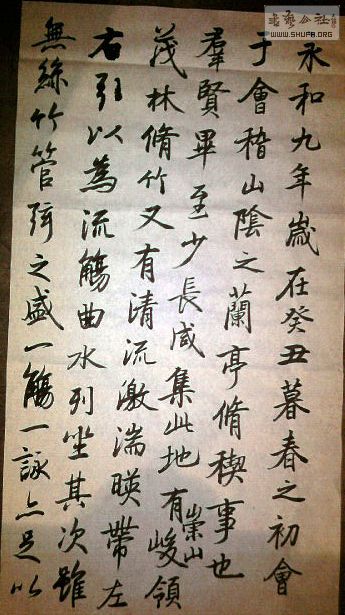 永和九年歲在癸丑暮春之初會
于會稽山陰之蘭亭脩稧事也
羣賢畢至少長咸集此地有崇山峻領
茂林脩竹又有清流激湍暎帶左
右引以為流觴曲水列坐其次雖
無絲竹管弦之盛一觴一詠亦足以
书艺公社
WWW.SHUFA.ORG